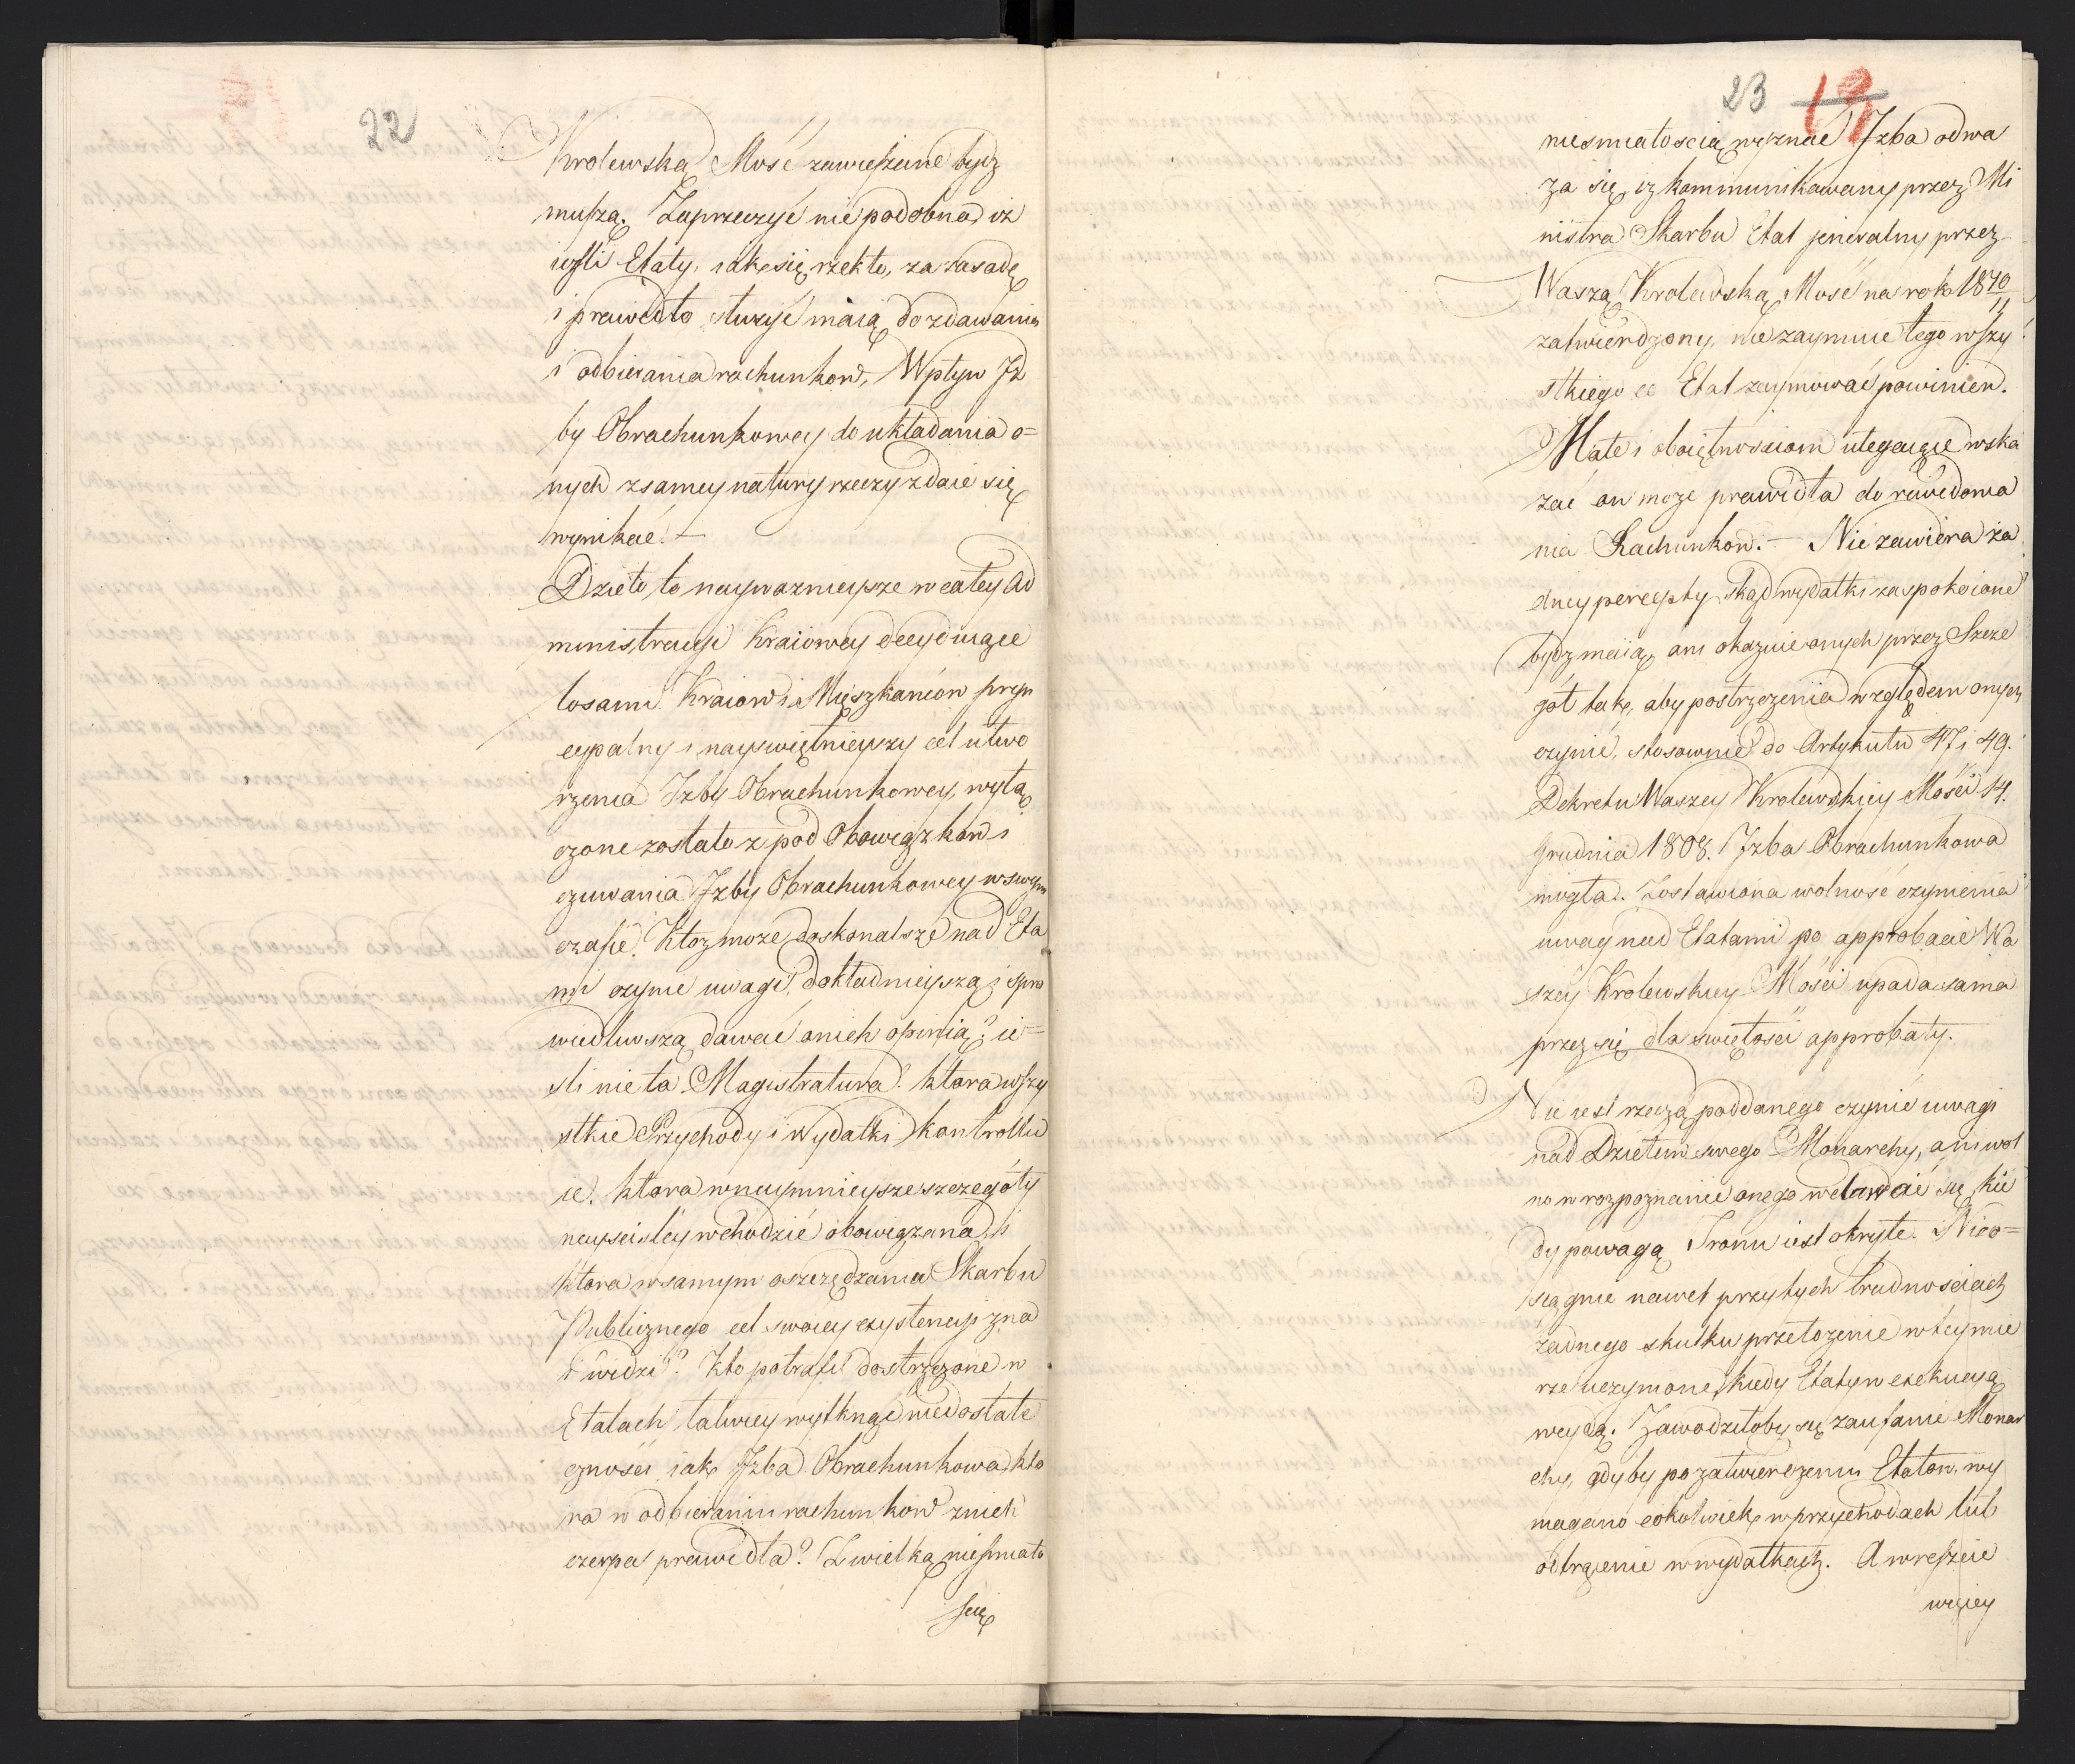 22
Krolewską Mość zawieszane bydz
muszą. Zaprzeczyć nie podobna, iż
ieżli Etaty, iak się rzekło, za zasadę
i prawidło służyć maią do zdawania
i odbierania rachunkow, Wpływ Iz
by Obrachunkowey do układania o=
nych z samey natury rzeczy zdaie się
wynikać. –
Dzieło to naywaznieysze w całey Ad
ministracyi Kraiowey decyduiące
losami Kraiow i Mieszkańców pryn
cypalny i nayswiętnieyszy cel utwo
rzenia Izby Obrachunkowey, wyłą
czone zostało z pod Obowiązków i
czuwania Izby Obrachunkowey w swym
czasie. Ktoż może doskonalsze nad Eta
mi czynić uwagi, dokładnieyszą i spra
wiedliwszą dawać o nich opinią? ie=
śli nie ta Magistratura? ktora wszy
stkie Przychody i Wydatki kontrollu
ie, ktora w naymnieysze szczegóły
nayściśley wchodzić obowiązana, i
ktora w samym oszczędzaniu Skarbu
Publicznego cel swoiey exystencyi zna
i widzi? Kto potrafi dostrzeżone w
Etatach łatwiey wytknąć niedostate
czności iak Izba Obrachunkowa, kto
ra w odbieraniu rachunkow z nich
czerpa prawidła? Z wielką nieśmiało
scią
23 19
nieśmiałością wyznać Izba odwa
ża się, iż kommunikowany przez Mi
nistra Skarbu Etat jeneralny przez
Waszą Krolewską Mość na rok 1810/11
zatwierdzony, nie zaymuie tego wszy
stkiego co Etat zaymować powinien.
Małe i oboiętnościom ulegaiące wska
zać on może prawidła do zawiadowa
nia Rachunkow. – Nie zawiera ża
dney percepty, skąd wydatki zaspokoione
bydz maią, ani okazuie onych przez Szcze
goł tak, aby postrzeżenia względem onych
czynić, stosownie do Artykułu 47 i 49.
Dekretu Waszey Krolewskiey Mości 14.
Grudnia 1808. Izba Obrachunkowa
mogła. Zostawiona wolność czynienia
uwag nad Etatami po approbacie Wa
szey Krolewskiey Mości upada sama
przez się dla świętości approbaty.
Nie iest rzeczą poddanego czynić uwagi
nad Dziełem swego Monarchy, ani wol
no w rozpoznanie onego wdawać się, kie
dy powagą Tronu iest okryte. Nieo=
siągnie nawet przy tych trudnościach
żadnego skutku przełożenie w tey mie
rze uczynione, kiedy Etaty w exekucyą
weydą. Zawodziłoby się zaufanie Monar
chy, gdyby po zatwierdzeniu Etatow, wy
magano cokolwiek w przychodach lub
odtrącenie w wydatkach. A wreszcie
więcey